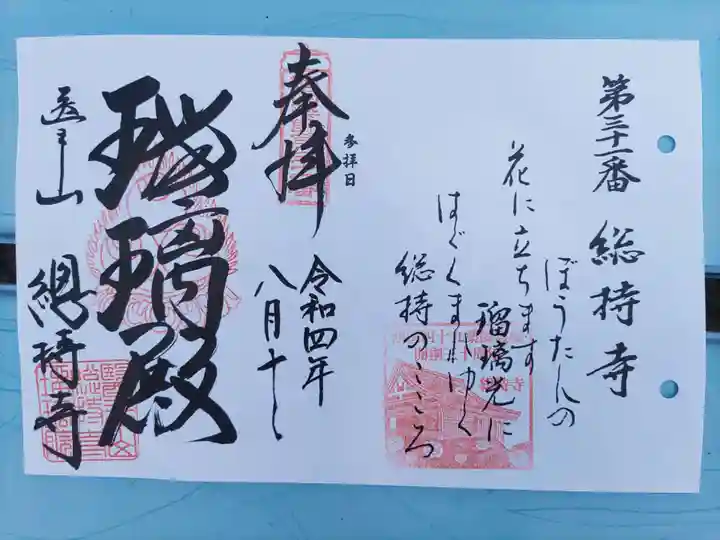 第三十一番 総持寺
ぼうたんの
花に立ちます
瑠璃光に
はぐくまれゆく
総持のこころ
奉拝
参拝日
令和四年
八月十
瑠璃殿
医王山
總持寺